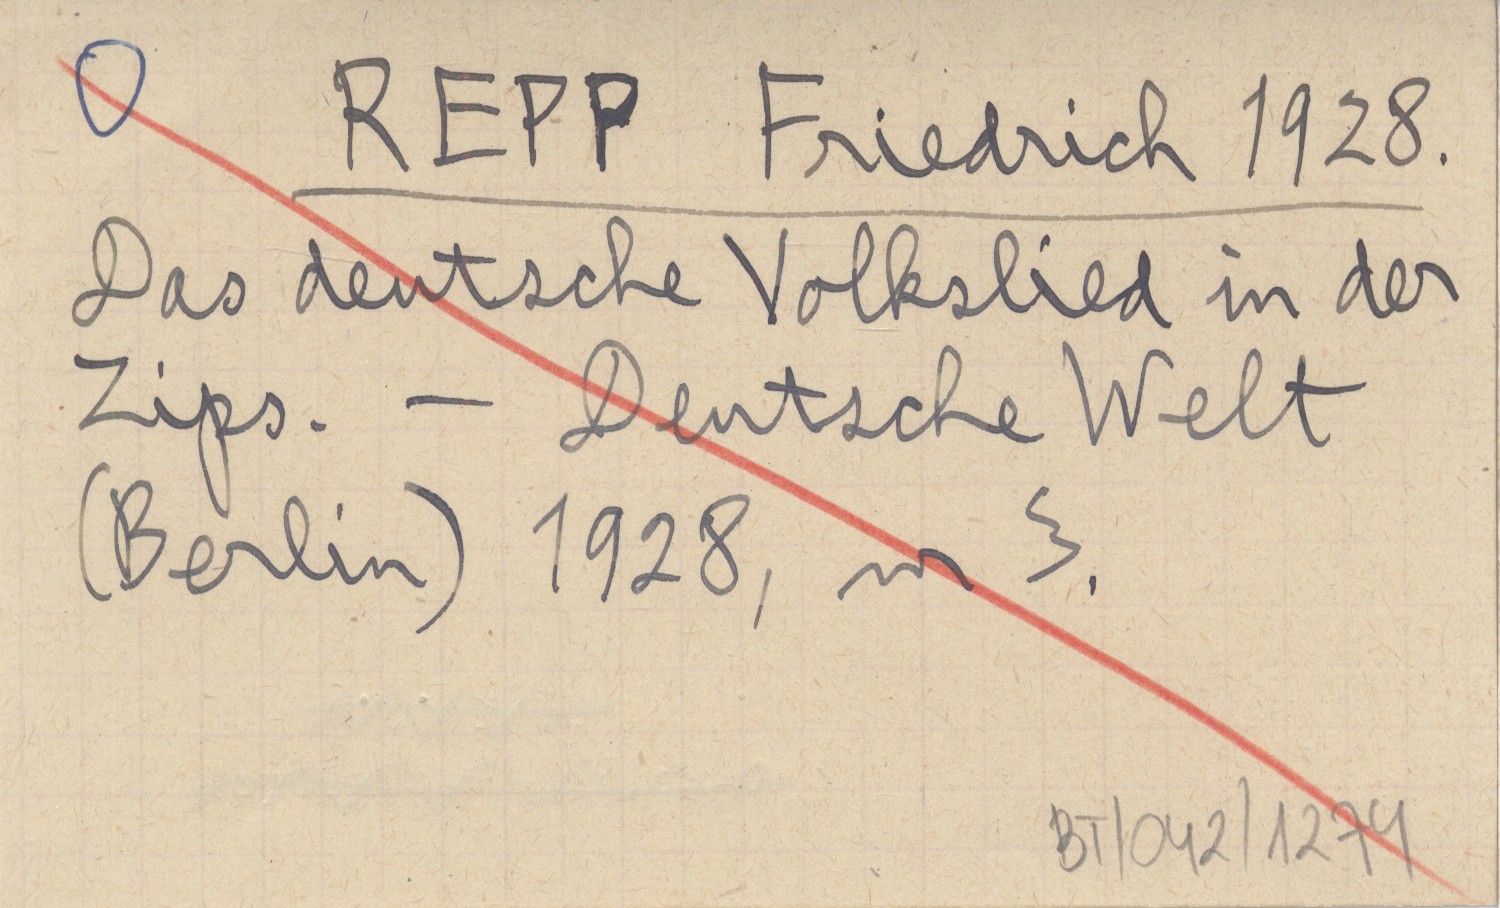 REPP Friedrich 1928.
Das deutsche Volkslied in der
Zips. — Deutsche Welt
(Berlin) 1928, nr 3.
BT/042/1274